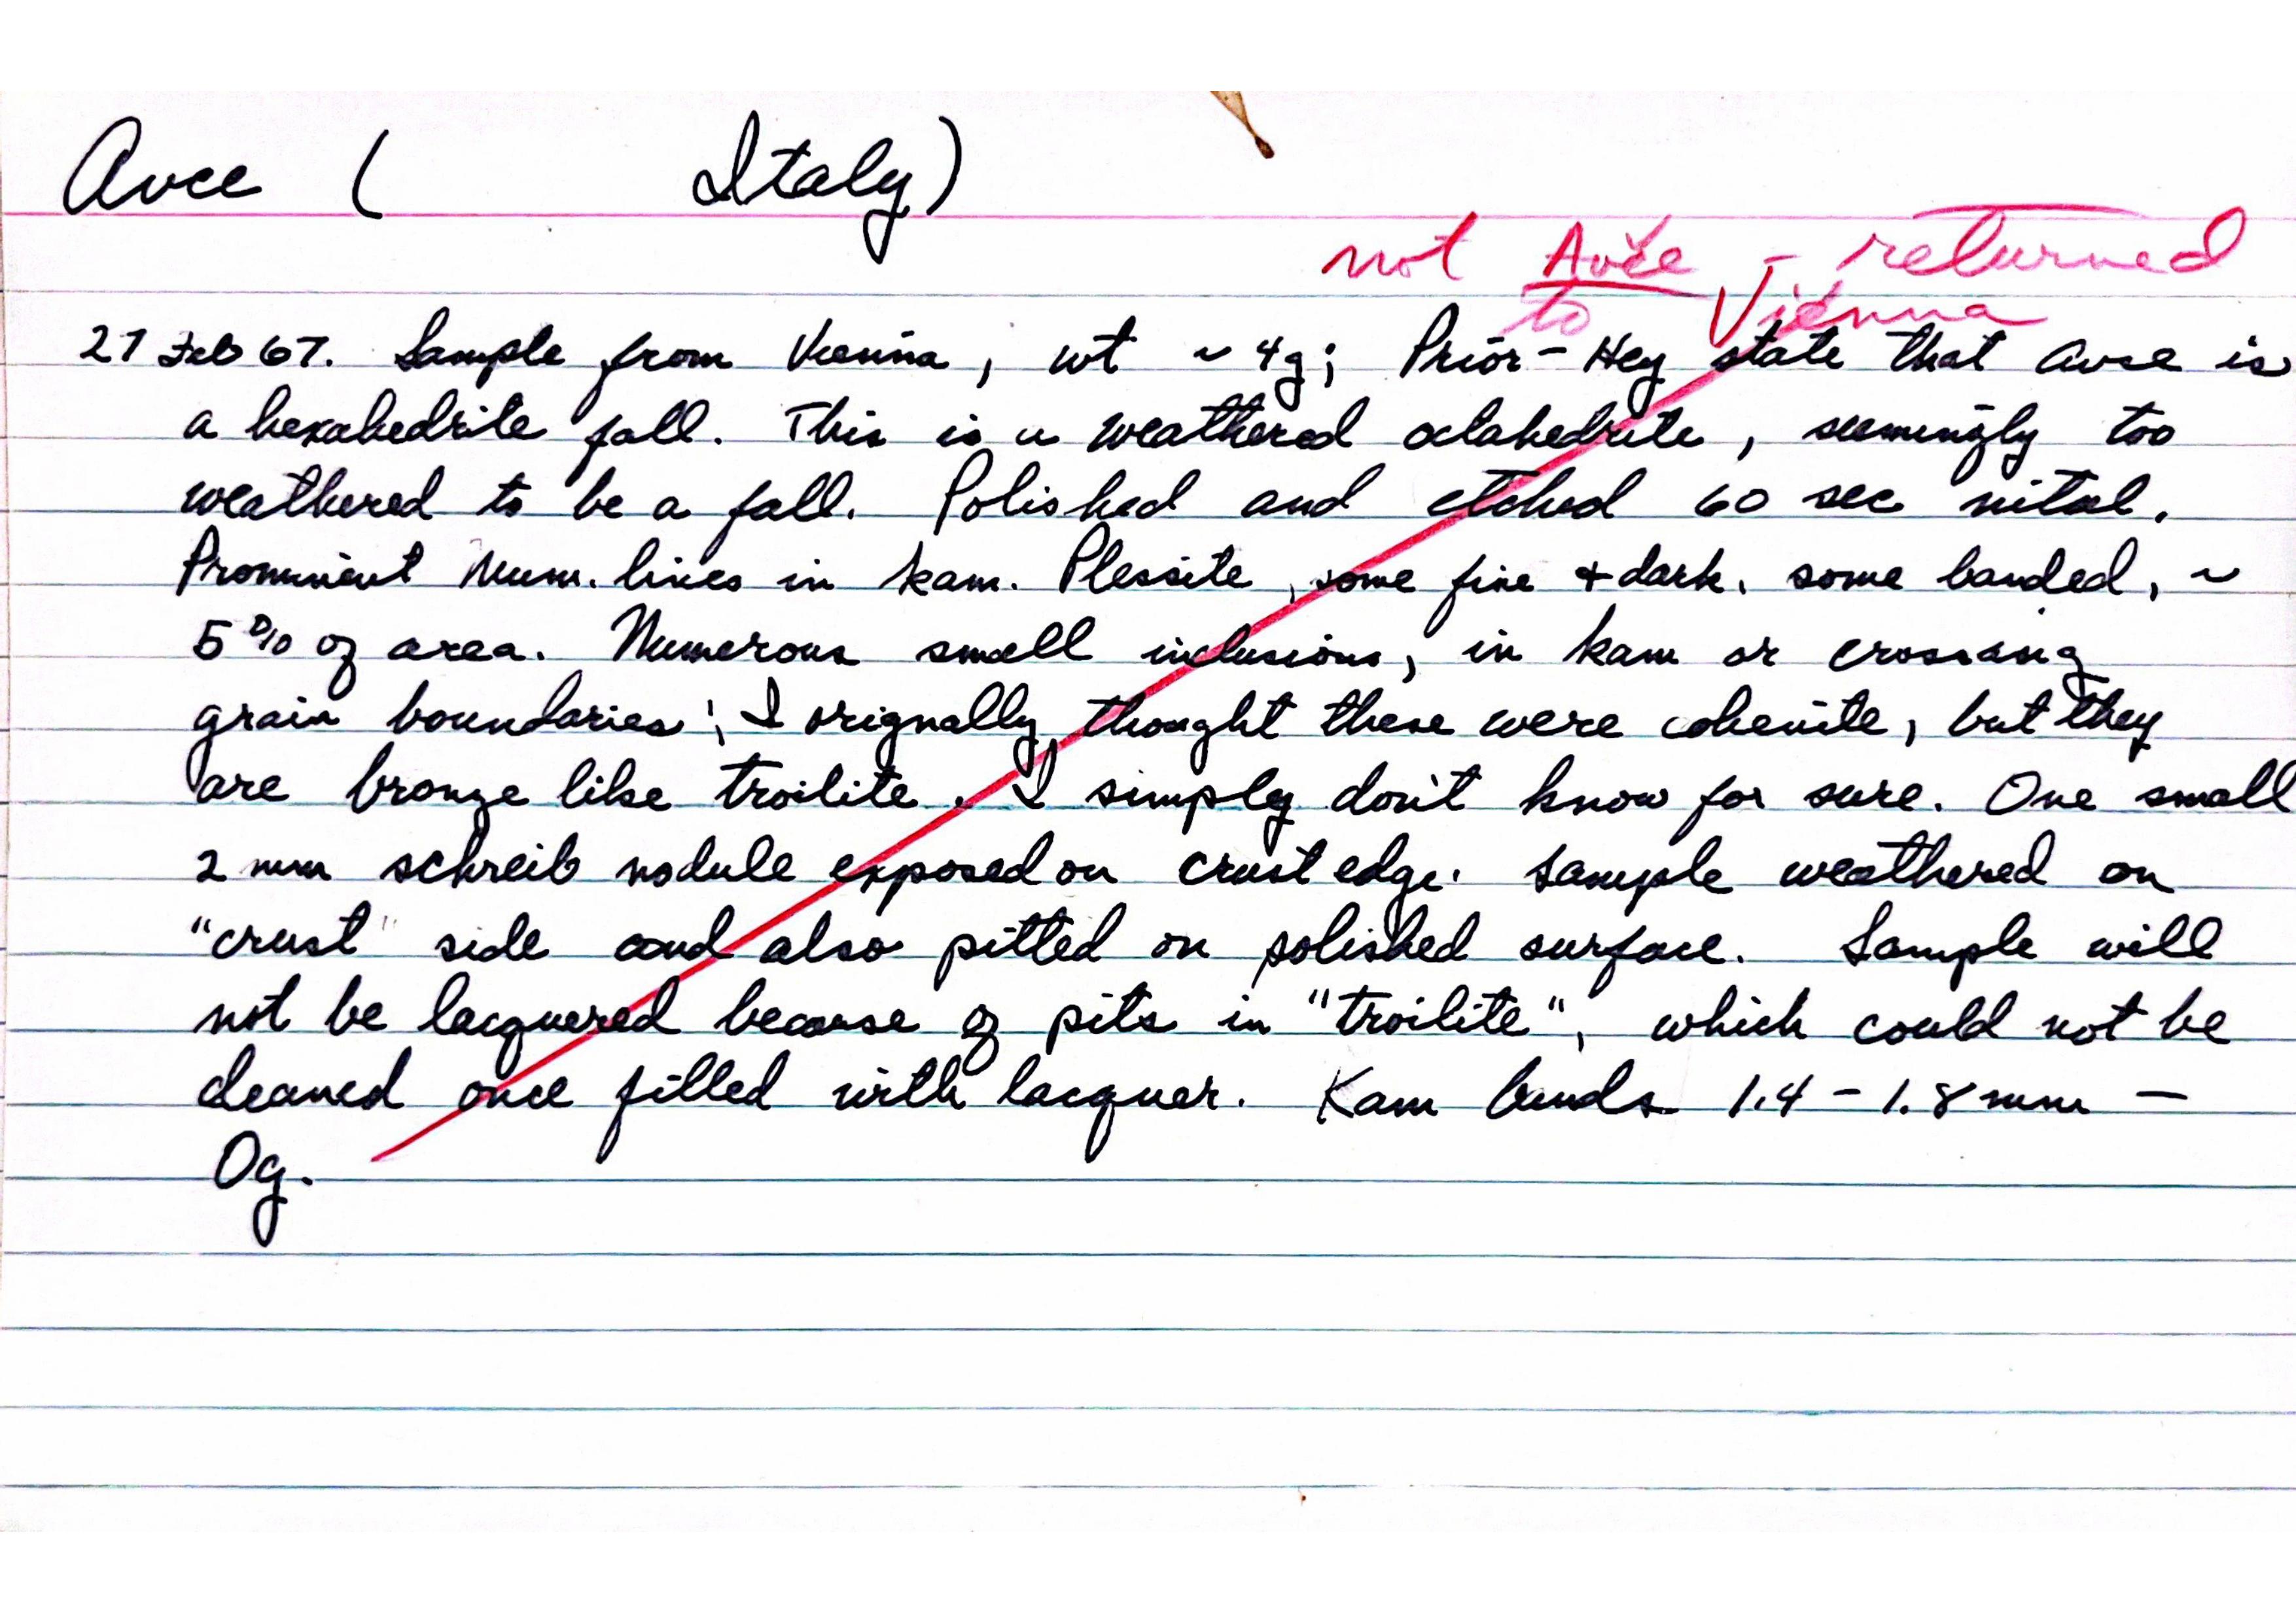 Avce ( Italy)
not Avče - returned
to Vienna
27 Feb 67. Sample from Vienna, wt ~ 4g; Prior-Hey state that Avce is
a hexahedrite fall. This is a weathered octahedrite, seemingly too
weathered to be a fall. Polished and etched 60 sec nital.
Prominent Neum. lines in kam. Plessite, some fine + dark, some banded, ~
5% of area. Numerous small inclusions, in kam or crossing
grain boundaries; I orignally thought these were cohenite, but they
are bronze like troilite. I simply don't know for sure. One small
2 mm schreib nodule exposed on crust edge. Sample weathered on
"crust" side and also pitted on polished surface. Sample will
not be lacquered because of pits in "troilite", which could not be
cleaned once filled with lacquer. Kam bands 1.4 - 1.8 mm —
Og.